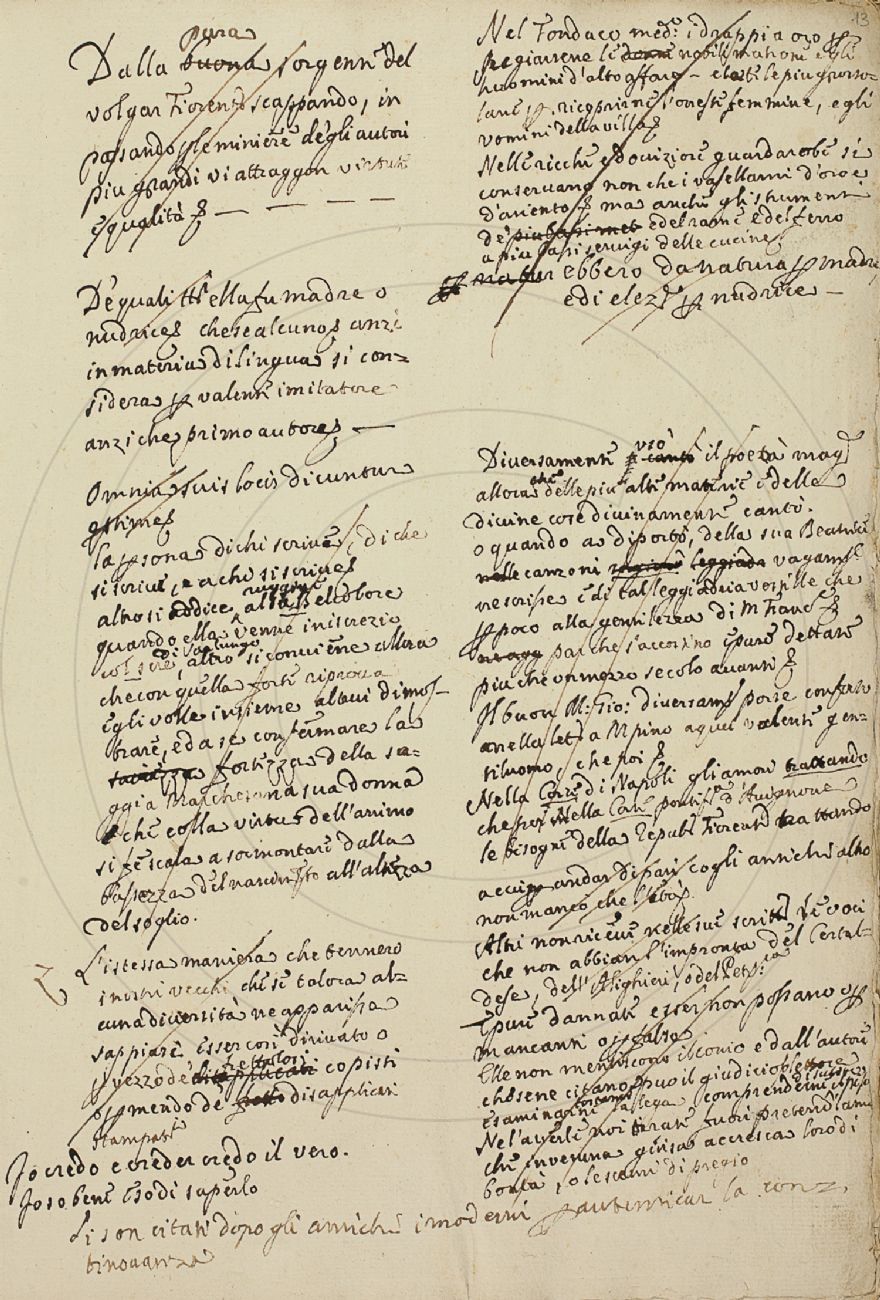 13
pura
Dalla buona sorgente del
volgar Fiorent° scappando, in
possando p le miniere degli autori
piu grandi vi attraggon virtute
e qualità
De quali tt' ella fu madre o
nudrice che se alcuno anzi
in materia di lingua si con=
sidera p valente imitatore
anzi che primo autore
Omnia suis locis dicuntur
la psona di chi scrive, di che
si scrive, e a chi si scrive
altro si addice
quando ella venne in iscrezio
di san lungo
altro si conviene allora
che con quella forte
egli volle insieme altrui dimos-
trare, ed a se confermare la
fortezza della sa-
ggia Marchesana sua donna
che colla virtu dell'animo
si fe scala a sormontare dalla
bassezza del nascim.to all'altezza
del soglio.
L'istessa maniera che tennero
i nostri vecchi che se talora al=
cuna diversità ne apparisca
sappiasi esser cosi dirivato o
p vezzo de copisti
o p mendo de disapplicati
stampat.i
Jo credo e creder credo il vero.
Jo so bene e so di saperlo
Si son citati dopo gli antichi i moderni p autenticar la con=
tinovanza
Nel Fondaco med.° i drappi a oro p
fregiarsene le nobili matrone e gli
huomini d'alto affare e le piu grosso=
lane p ricoprirne l'oneste femmine, e gli
uomini della villa
Nelle ricche e doviziose guardarobe si
conservano non che i vasellami d'oro e
d'ariento ma anche gli strumenti
de piu bassi met e del rame e del ferro
a piu bassi servigi delle cucine
ebbero da natura p madre,
e di elez.e p nudrice
usò
Diversamente il poeta
allora che delle piu alte materie e delle
divine cose divinamente cantò.
o quando a diporto, della sua Beatrice
nelle canzoni leggiadra vagam.te
ne scrisse e di tal leggiadria vestille che
p poco alla gentilezza di M Franc.
par che s'accostino e pure dettate
piu che un mezzo secolo avanti
Il buon M. Gio: diversam.te porse conforto
nella lett.a a M pino a quel valente gen-
tiluomo, che poi
Nella Corte di Napoli gli amori trattando
che poi Nella Corte pontif.a d'Avignone
le bisogne della Repub. Fiorent.a trattando
andar di pari cogli antichi altro
non manco che l'età
Altri non riceve nelle sue scritt.e le voci
che non abbian l'impronta del Certal-
dese, dell'Alighieri, o del Petr.ca
E pure dannate esser non possano o p
mancanti o p false
Elle non mentiscono il conio e dall'autori
che se ne citano può il giudicioso lettore
esaminarne la lega e comprenderne
Nel'averle noi tirate fuori pretendiamo
che in veruna guisa accresca loro di
bontà, o le scemi di pregio